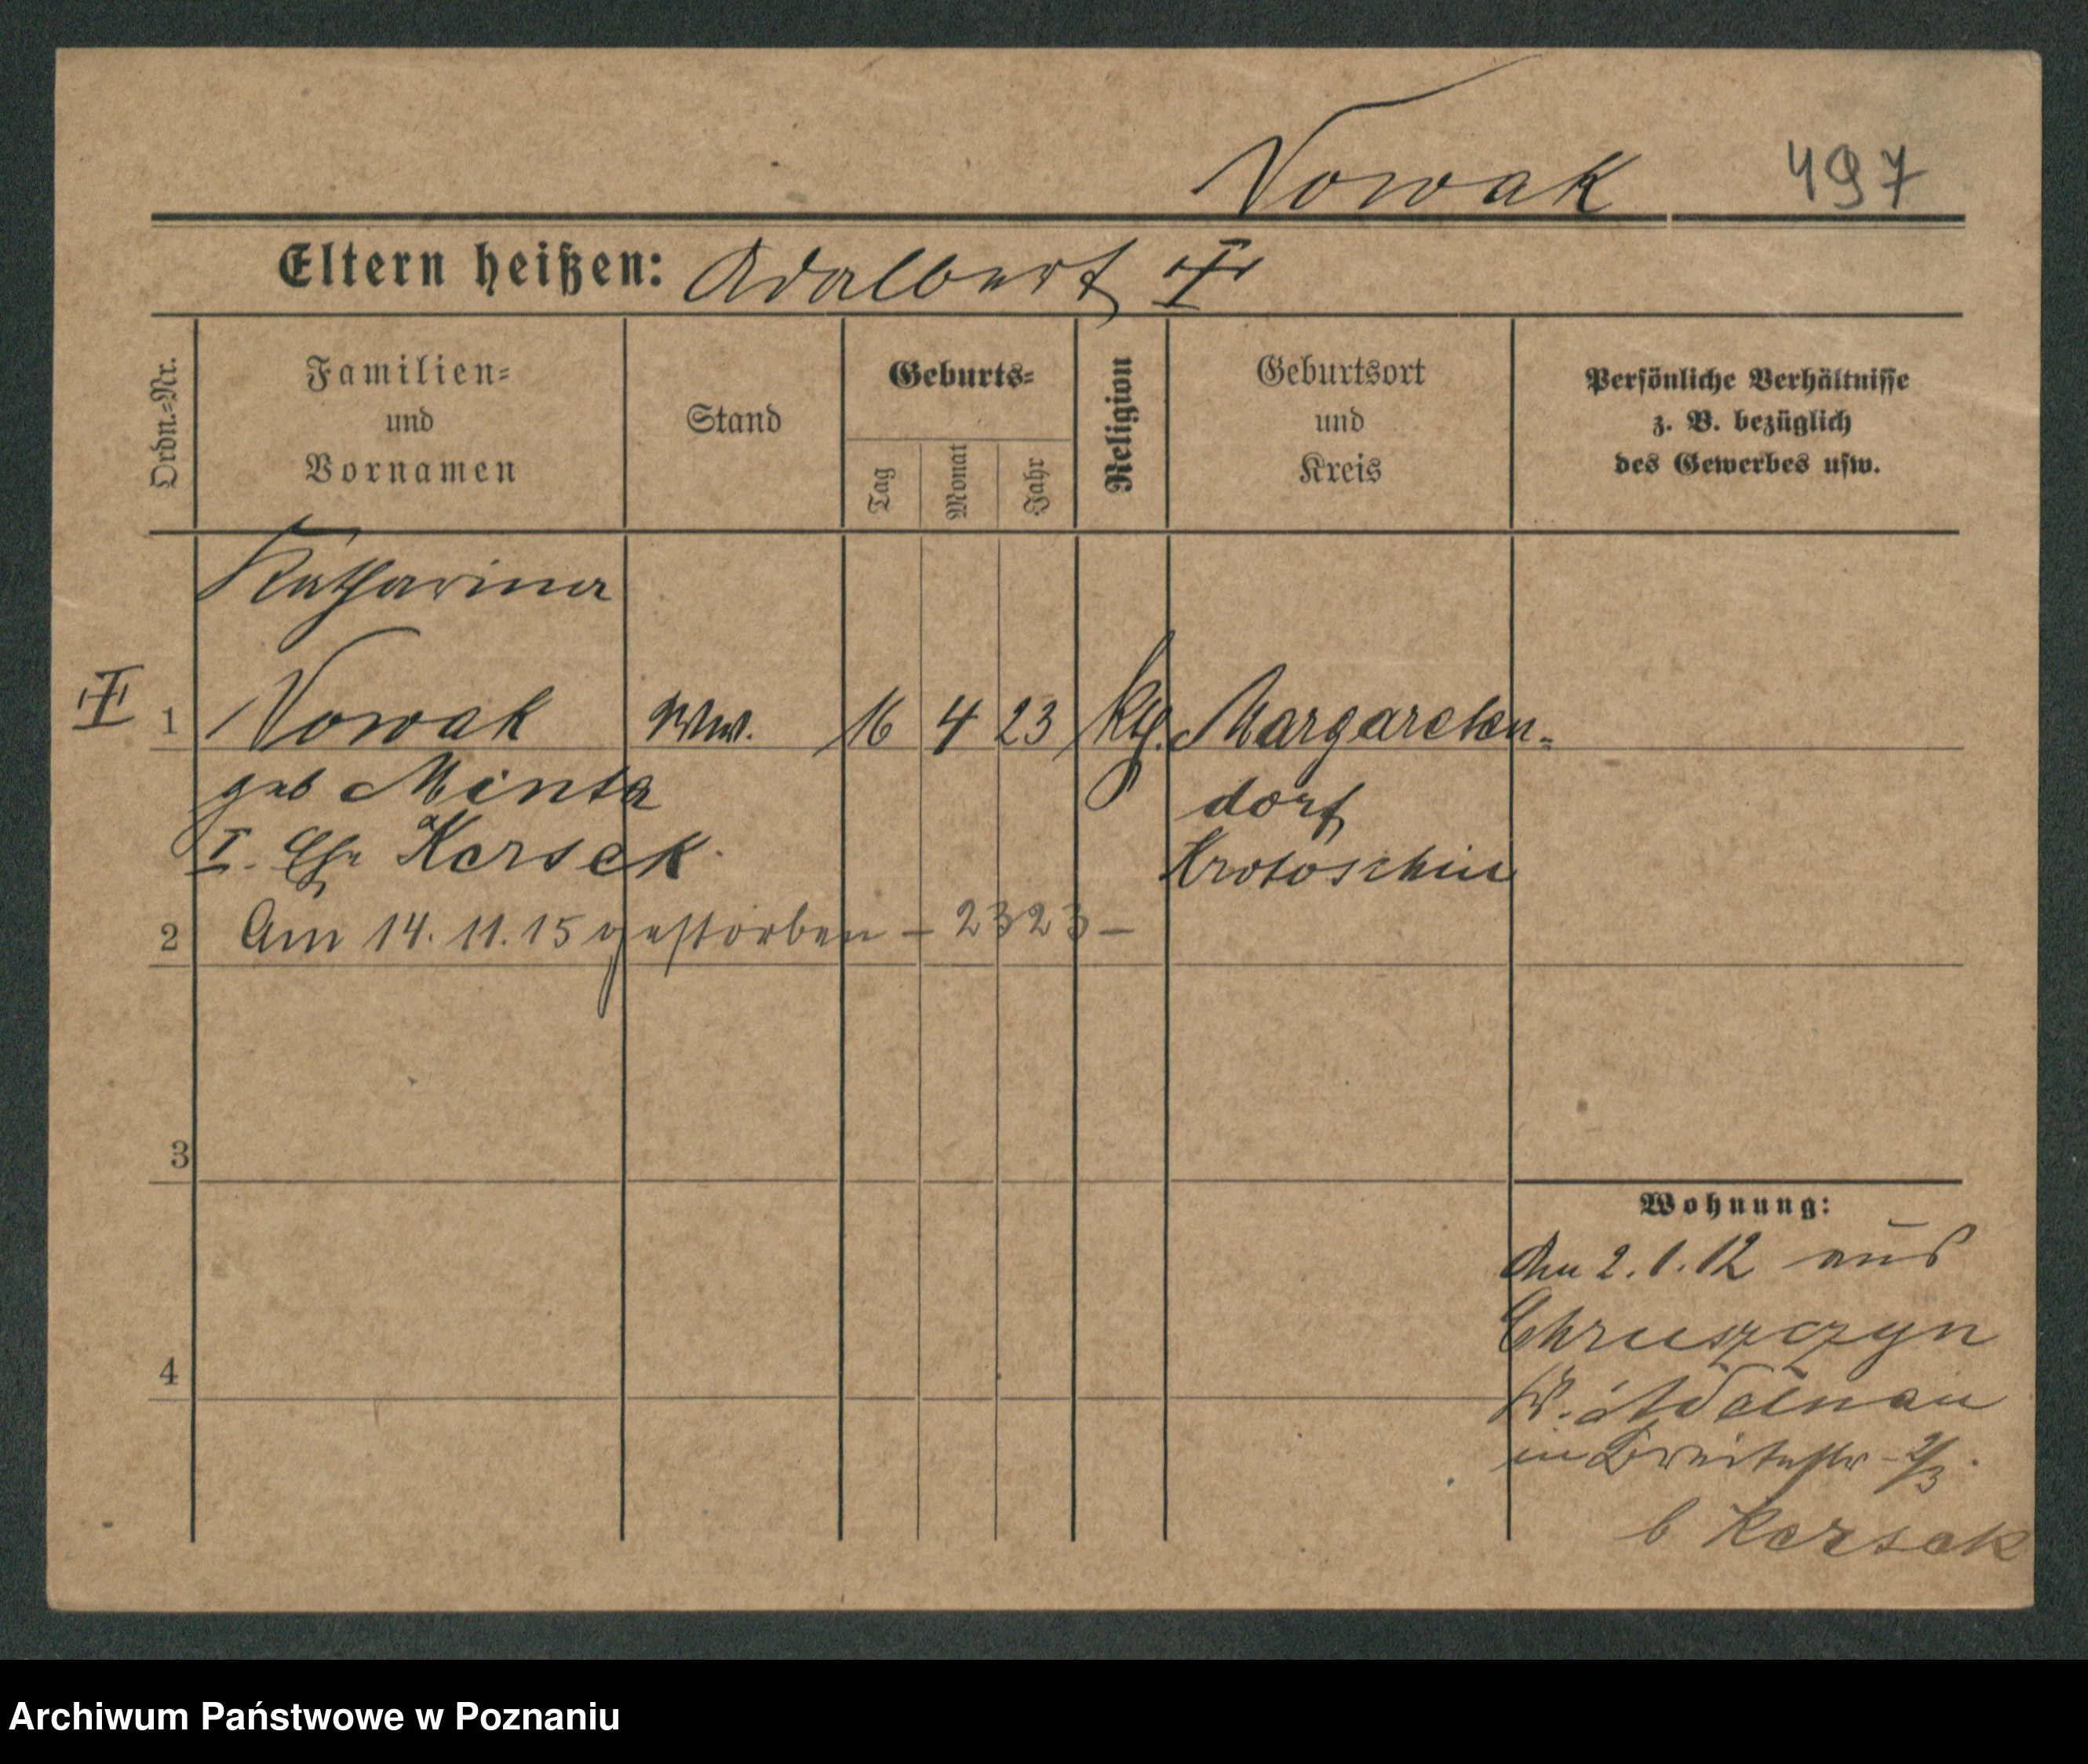 Nowak 497
Eltern heißen: Adalbert
Ordn.=Nr.
Familien=
und
Vornamen
Stand
Geburts=
Tag
Monat
Jahr
Religion
Geburtsort
und
Kreis
Persönliche Verhältnisse
z. B. bezüglich
des Gewerbes usw.
Katharina
1 Nowak Ww. 16 4 23 kth. Margareten-
geb Minta dorf
I. Ehe Kersek Krotoschin
2 Am 14. 11. 15 gestorben - 2323 -
3
4
Wohnung:
Am 2. 1. 12 aus
Chruszczyn
Kr. Adelnau
in Breitestr. 2/3
b Kersek
Archiwum Państwowe w Poznaniu